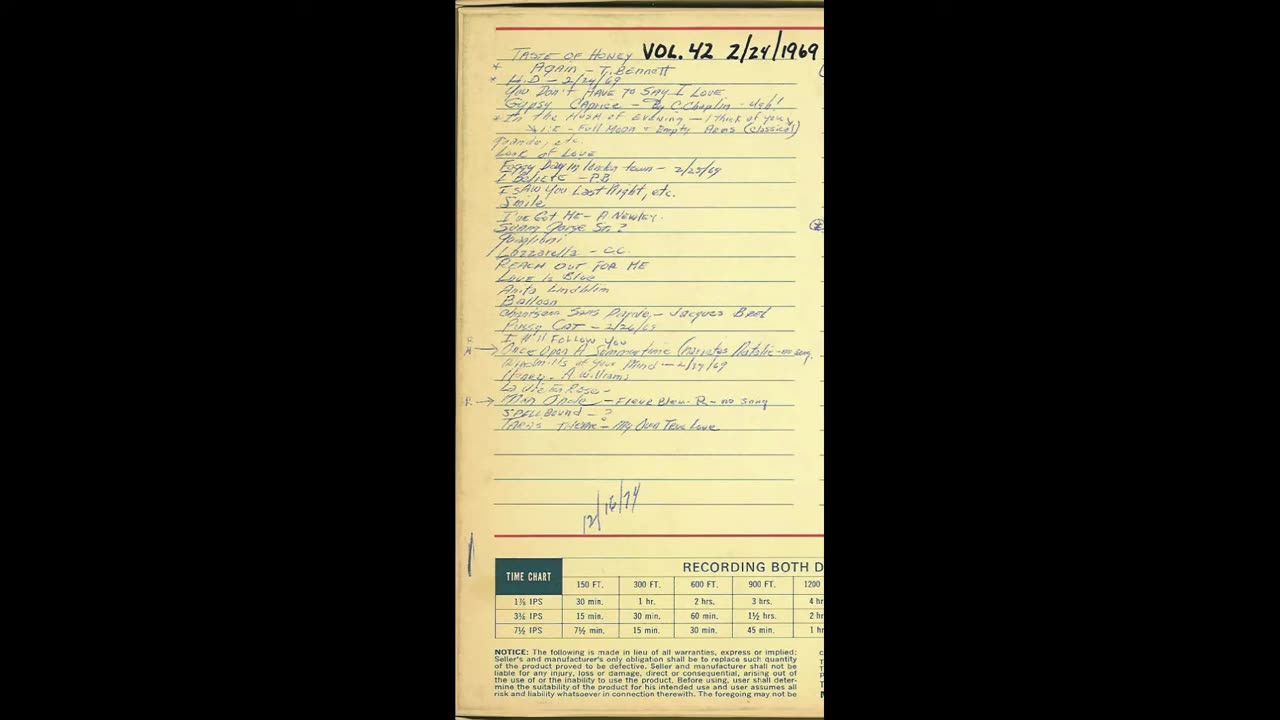 TASTE OF HONEY VOL. 42 2/24/1969
* AGAIN - T. BENNETT
* H.D - 2/24/69
YOU DON'T HAVE TO SAY I LOVE
GYPSY CAPRICE - By C. Chaplin - Ugh!
* In the HUSH of EVENING - I Think of you,
I.E - Full Moon + Empty Arms (classical)
etc.
Look of Love
Foggy Day in London town - 2/25/69
I Believe - P.B
I SAW YOU Last Night, etc.
Smile
I've Got ME - A Newley.
?
Guaglione
Lazzarella - C.C.
REACH OUT FOR ME
LOVE Is Blue
Anita Lindblom
Balloon
Chansons Sans Parole - Jacques Brel
Pussy CAT - 2/26/69
I'll FOLLOW YOU
→ ONCE UPON A Summertime (narrates Natalie - no song.
Windmills of Your Mind -
Honey - A. Williams
La Vie En Rose -
→ - Fleur Bleu - R - no song
SPELLBOUND - ?
TARAS THEME - My Own True Love
12/16/74
RECORDING BOTH D
TIME CHART 150 FT. 300 FT. 600 FT. 900 FT. 1200
1⅞ IPS 30 min. 1 hr. 2 hrs. 3 hrs. 4 hr
3¾ IPS 15 min. 30 min. 60 min. 1½ hrs. 2 h
7½ IPS 7½ min. 15 min. 30 min. 45 min. 1 h
NOTICE: The following is made in lieu of all warranties, express or implied:
Seller's and manufacturer's only obligation shall be to replace such quantity
of the product proved to be defective. Seller and manufacturer shall not be
liable for any injury, loss or damage, direct or consequential, arising out of
the use of or the inability to use the product. Before using, user shall deter-
mine the suitability of the product for his intended use and user assumes all
risk and liability whatsoever in connection therewith. The foregoing may not be